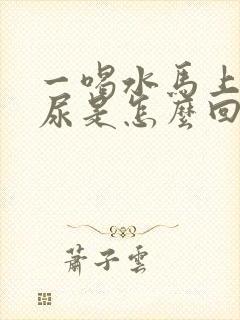 一喝水馬上
尿是怎麼回
蕭子雲